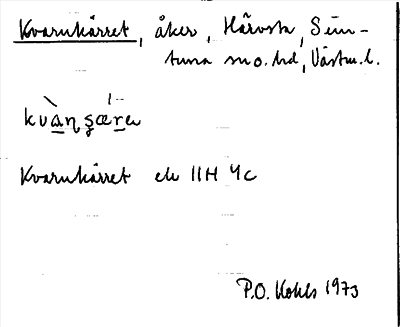 Kvarnkärret, åker, Härvsta, Sim-
tuna sn o. hd, Västm. l.
kvàṉṣæ̱ṟa
Kvarnkärret ek 11H 4c
P.O. Kohls 1973